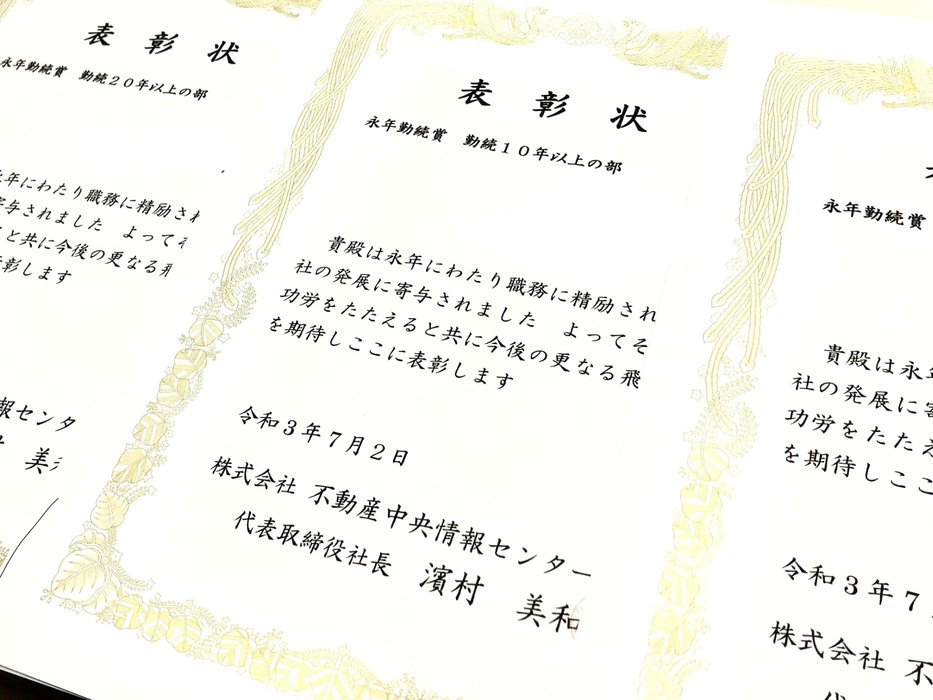 表彰状
永年勤続賞 勤続２０年以上の部
年にわたり職務に精励され
寄与されました よってそ
と共に今後の更なる飛
彰します
報センタ
美
表彰状
永年勤続賞 勤続１０年以上の部
貴殿は永年にわたり職務に精励され
社の発展に寄与されました よってそ
功労をたたえると共に今後の更なる飛
を期待しここに表彰します
令和３年７月２日
株式会社 不動産中央情報センター
代表取締役社長 濱村 美和
永年勤続賞
貴殿は永年
社の発展に寄
功労をたたえ
を期待しここ
令和３年７
株式会社 不